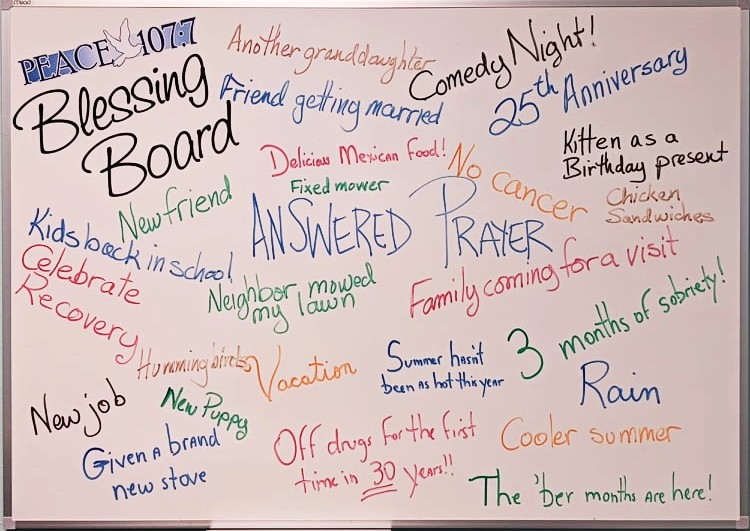 PEACE 107.7
Blessing
Board
Another granddaughter
Comedy Night!
Friend getting married
25th Anniversary
Delicious Mexican Food!
Fixed mower
No cancer
Kitten as a
Birthday present
Chicken
Sandwiches
New friend
ANSWERED PRAYER
Kids back in school
Celebrate
Recovery
Neighbor mowed
my lawn
Family coming for a visit
Hummingbirds
Vacation
Summer hasn't
been as hot this year
3 months of sobriety!
Rain
New job
New Puppy
Given A brand
new stove
Off drugs for the first
time in 30 years!!
Cooler summer
The 'ber months are here!